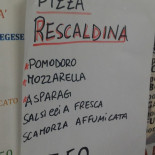 PIZZA
RESCALDINA
POMODORO
MOZZARELLA
ASPARAGI
SALSICCIA FRESCA
SCAMORZA AFFUMICATA